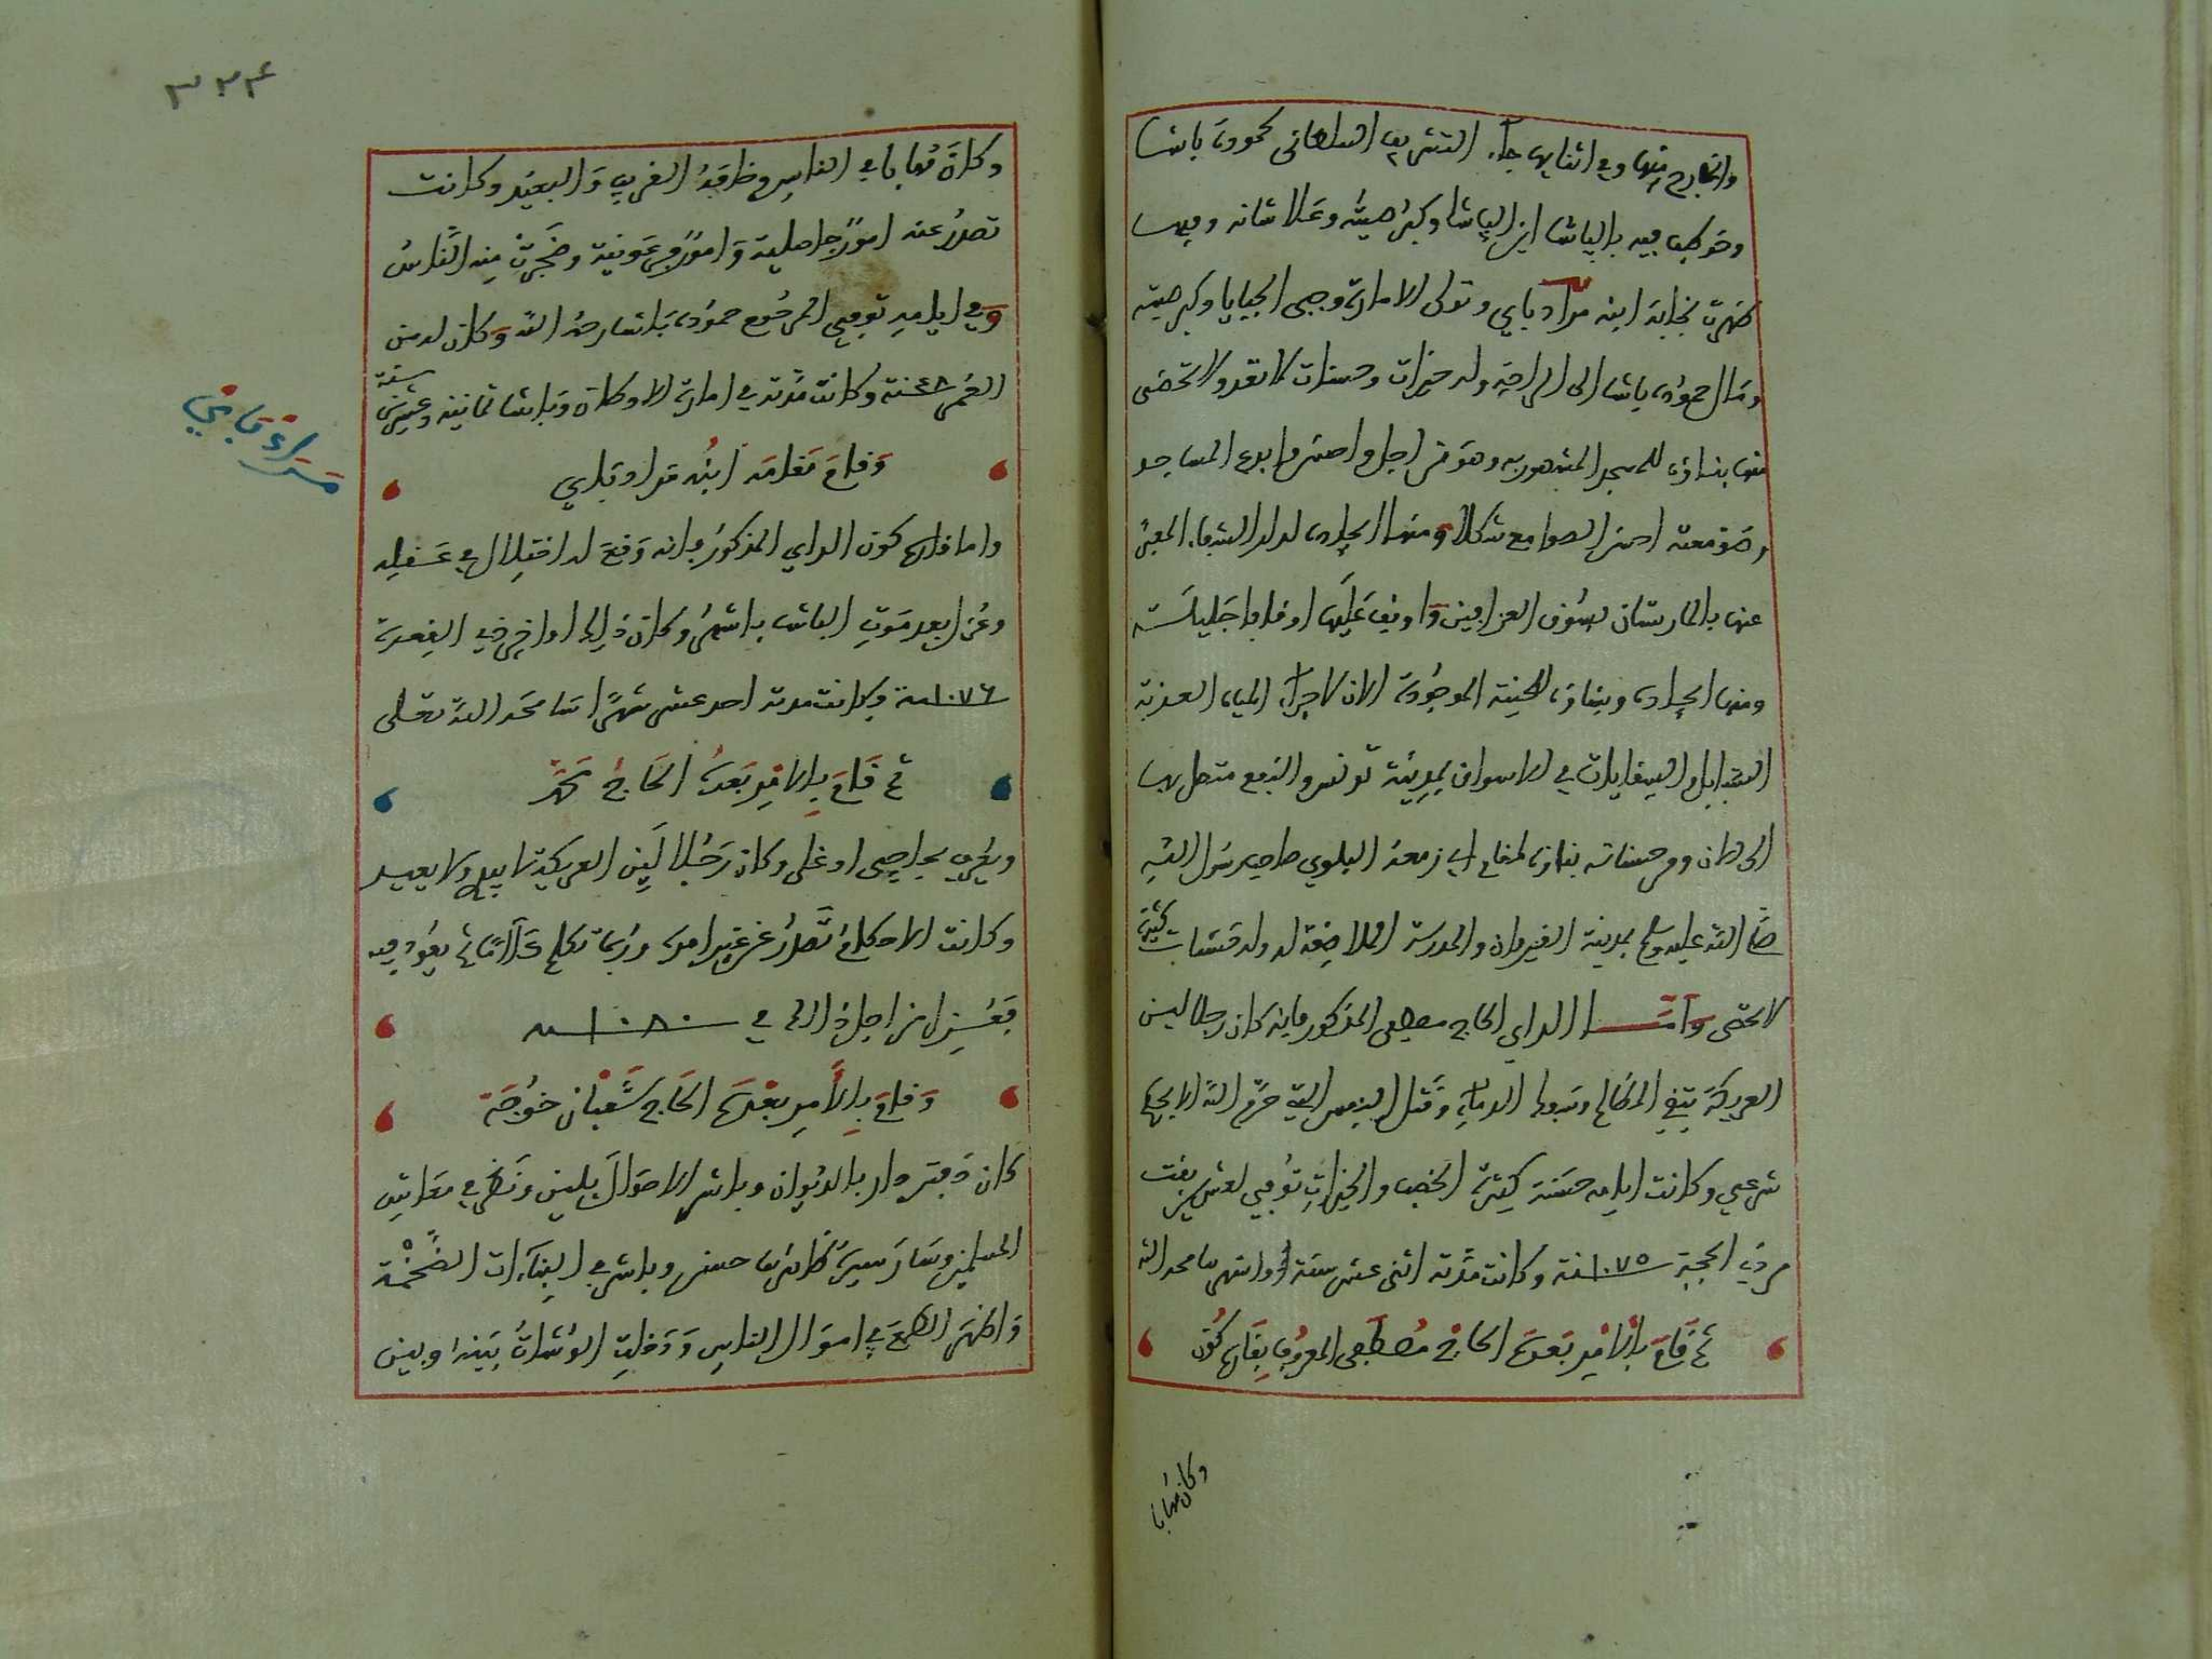 والخارج منها وفي اثنايها جاء التشريف السلطاني لحمودة باشا
وخوطب فيه بالباشا ابن الباشا وكبر صيته وعلا شانه وفيها
ظهرت نجابة ابنه مراد باي وتولى الامارة وجبى الجبايا وكبر صيته
ومال حمودة باشا الى الراحة وله خيرات وحسنات لا تعد ولا تحصى
منها بناؤه للمسجد المشهور به وهو من اجل واحسن وابدع المساجد
وصومعته احسن الصوامع شكلا ومنها ايجاده لدار الشفاء المعبر
عنها بالمارستان بسوق العزافين واوقف عليها اوقافا جليلة
ومنها ايجاده وبناؤه للحنية الموجودة الان لاجراء المياه العذبة
السبابل والسقايات في الاسواق بمدينة تونس والنفع متصل بها
الى الان ومن حسناته بناؤه لمقام ابي زمعة البلوي صاحب رسول الله
صلى الله عليه وسلم بمدينة القيروان والمدرسة الملاصقة له وله حسنات كثيرة
لا تحصى وامـــا الداي الحاج مصطفى المذكور فانه كان رجلا لين
العريكة يتقي المظالم وسفك الدماء وقتل النفس التي حرم الله الا بوجه
شرعي وكانت ايامه حسنة كثيرة الخصب والخيرات توفي لعشر بقت
من ذي الحجة ١٠٧٥ سنة وكانت مدته اثنى عشر سنة واشهر سامحه الله
ثم قام بالامر بعده الحاج مصطفى المعروف بقاره كوز
وكان مهابا
٣٢٤
وكان مهابا في الناس وخافه القريب والبعيد وكانت
تصدر عنه امور جاهلية وامور فرعونية وضجرت منه الناس
وفي ايامه توفي المرحوم حمودة باشا رحمه الله وكان له من
العمر سنة وكانت مدته في امارة الاوطان وباشا ثمانية وعشرين سنة
وقام مقامه ابنه مراد باي
مراد باي
واما قاره كوز الداي المذكور فانه وقع له اختلال في عقله
وعزل بعد موت الباشا باشهر وكان ذلك اواخر ذي القعدة
١٠٧٦ سنة وكانت مدته احد عشر شهرا سامحه الله تعلى
ثم قام بالامر بعده الحاج محمد
ويعرف بحاجي اوغلي وكان رجلا لين العريكة لا يبدي ولا يعيد
وكانت الاحكام تصدر عن غير امره وربما تكلم كلاما ثم يعود فيه
فعزل من اجل ذلك في ١٠٨٠ سنة
وقام بالامر بعده الحاج شعبان خوجة
كان دفتردار بالديوان وباشر الاحوال بلين ونظر في معايش
المسلمين وسار سيرة ظاهرها حسن وباشر في البناءات الضخمة
واظهر الطمع في اموال الناس ودخلت الوشاة بينه وبين